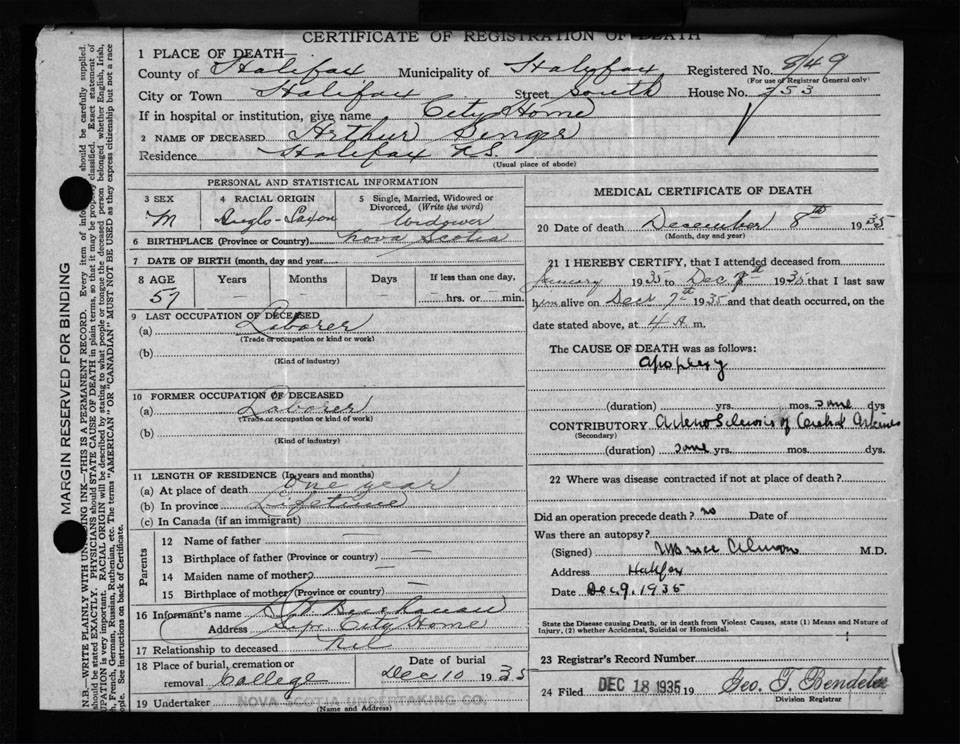 CERTIFICATE OF REGISTRATION OF DEATH
1 PLACE OF DEATH—
County of Halifax Municipality of Halifax Registered No. 8/49
(For use of Registrar General only)
City or Town Halifax Street South House No. 753
If in hospital or institution, give name City Home
2 NAME OF DECEASED Arthur
Residence Halifax N.S.
(Usual place of abode)
PERSONAL AND STATISTICAL INFORMATION
3 SEX M
4 RACIAL ORIGIN Anglo-Saxon
5 Single, Married, Widowed or Divorced, (Write the word) Widower
6 BIRTHPLACE (Province or Country) Nova Scotia
7 DATE OF BIRTH (month, day and year)
8 AGE 57 Years — Months — Days — If less than one day, hrs. or min.
9 LAST OCCUPATION OF DECEASED
(a) Laborer
(Trade or occupation or kind or work)
(b)
(Kind of industry)
10 FORMER OCCUPATION OF DECEASED
(a) Laborer
(Trade or occupation or kind or work)
(b)
(Kind of industry)
11 LENGTH OF RESIDENCE (In years and months)
(a) At place of death One year
(b) In province Lifetime
(c) In Canada (if an immigrant)
Parents
12 Name of father —
13 Birthplace of father (Province or country) —
14 Maiden name of mother —
15 Birthplace of mother (Province or country) —
16 Informant's name Buchanan
Address Supt City Home
17 Relationship to deceased Nil
18 Place of burial, cremation or removal College
Date of burial Dec 10 1935
19 Undertaker NOVA SCOTIA UNDERTAKING CO.
(Name and Address)
MEDICAL CERTIFICATE OF DEATH
20 Date of death December 8th 1935
(Month, day and year)
21 I HEREBY CERTIFY, that I attended deceased from
January 1935 to Dec 8th 1935 that I last saw
him alive on Dec 7th 1935 and that death occurred, on the
date stated above, at 4 A. m.
The CAUSE OF DEATH was as follows:
Apoplexy
(duration) yrs. mos. some dys
CONTRIBUTORY Arterio Sclerosis of Cerebral Arteries
(Secondary)
(duration) some yrs. mos. dys.
22 Where was disease contracted if not at place of death?
Did an operation precede death? no Date of
Was there an autopsy?
(Signed) M.D.
Address Halifax
Date Dec 9, 1935
State the Disease causing Death, or in death from Violent Causes, state (1) Means and Nature of
Injury, (2) whether Accidental, Suicidal or Homicidal.
23 Registrar's Record Number
24 Filed DEC 18 1935 19 Geo. T. Bendelier
Division Registrar
MARGIN RESERVED FOR BINDING
N.B.—WRITE PLAINLY WITH UNFADING INK—THIS IS A PERMANENT RECORD. Every item of information should be carefully supplied.
should be stated EXACTLY. PHYSICIANS should STATE CAUSE OF DEATH in plain terms, so that it may be properly classified. Exact statement of
UPATION is very important. RACIAL ORIGIN will be described by stating to what people or tongue the deceased person belonged whether English, Irish,
French, German, Russian, Ruthenian, etc. The terms "AMERICAN" OR "CANADIAN" MUST NOT BE USED as they express citizenship but not a race
ople. See instructions on back of Certificate.